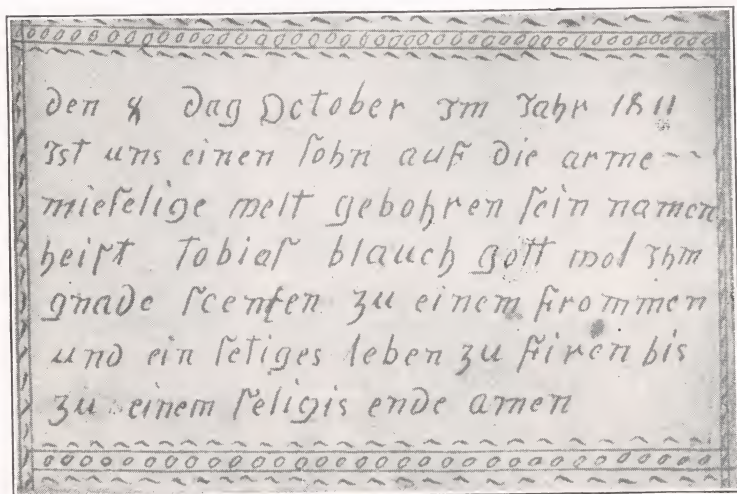 den 8 dag October im Jahr 1811
Ist uns einen ſohn auf die arme
mieſelige welt gebohren ſein namen
heiſt Tobiaſ blauch gott wol ihm
gnade ſcenken zu einem frommen
und ein ſeliges leben zu firen bis
zu einem ſeligis ende amen